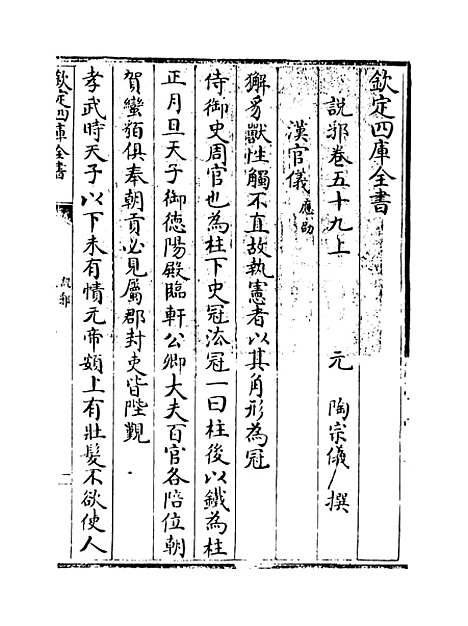 欽定四庫全書
說郛卷五十九上
元 陶宗儀 撰
漢官儀應劭
獬豸獸性觸不直故執憲者以其角形為冠
侍御史周官也為柱下史冠法冠一曰柱後以鐵為柱
正月旦天子御徳陽殿臨軒公卿大夫百官各陪位朝
賀蠻貊俱奉朝貢必見屬郡封吏皆陛覲
孝武時天子以下未有幘元帝頟上有壯髮不欲使人
欽定四庫全書
說郛
二